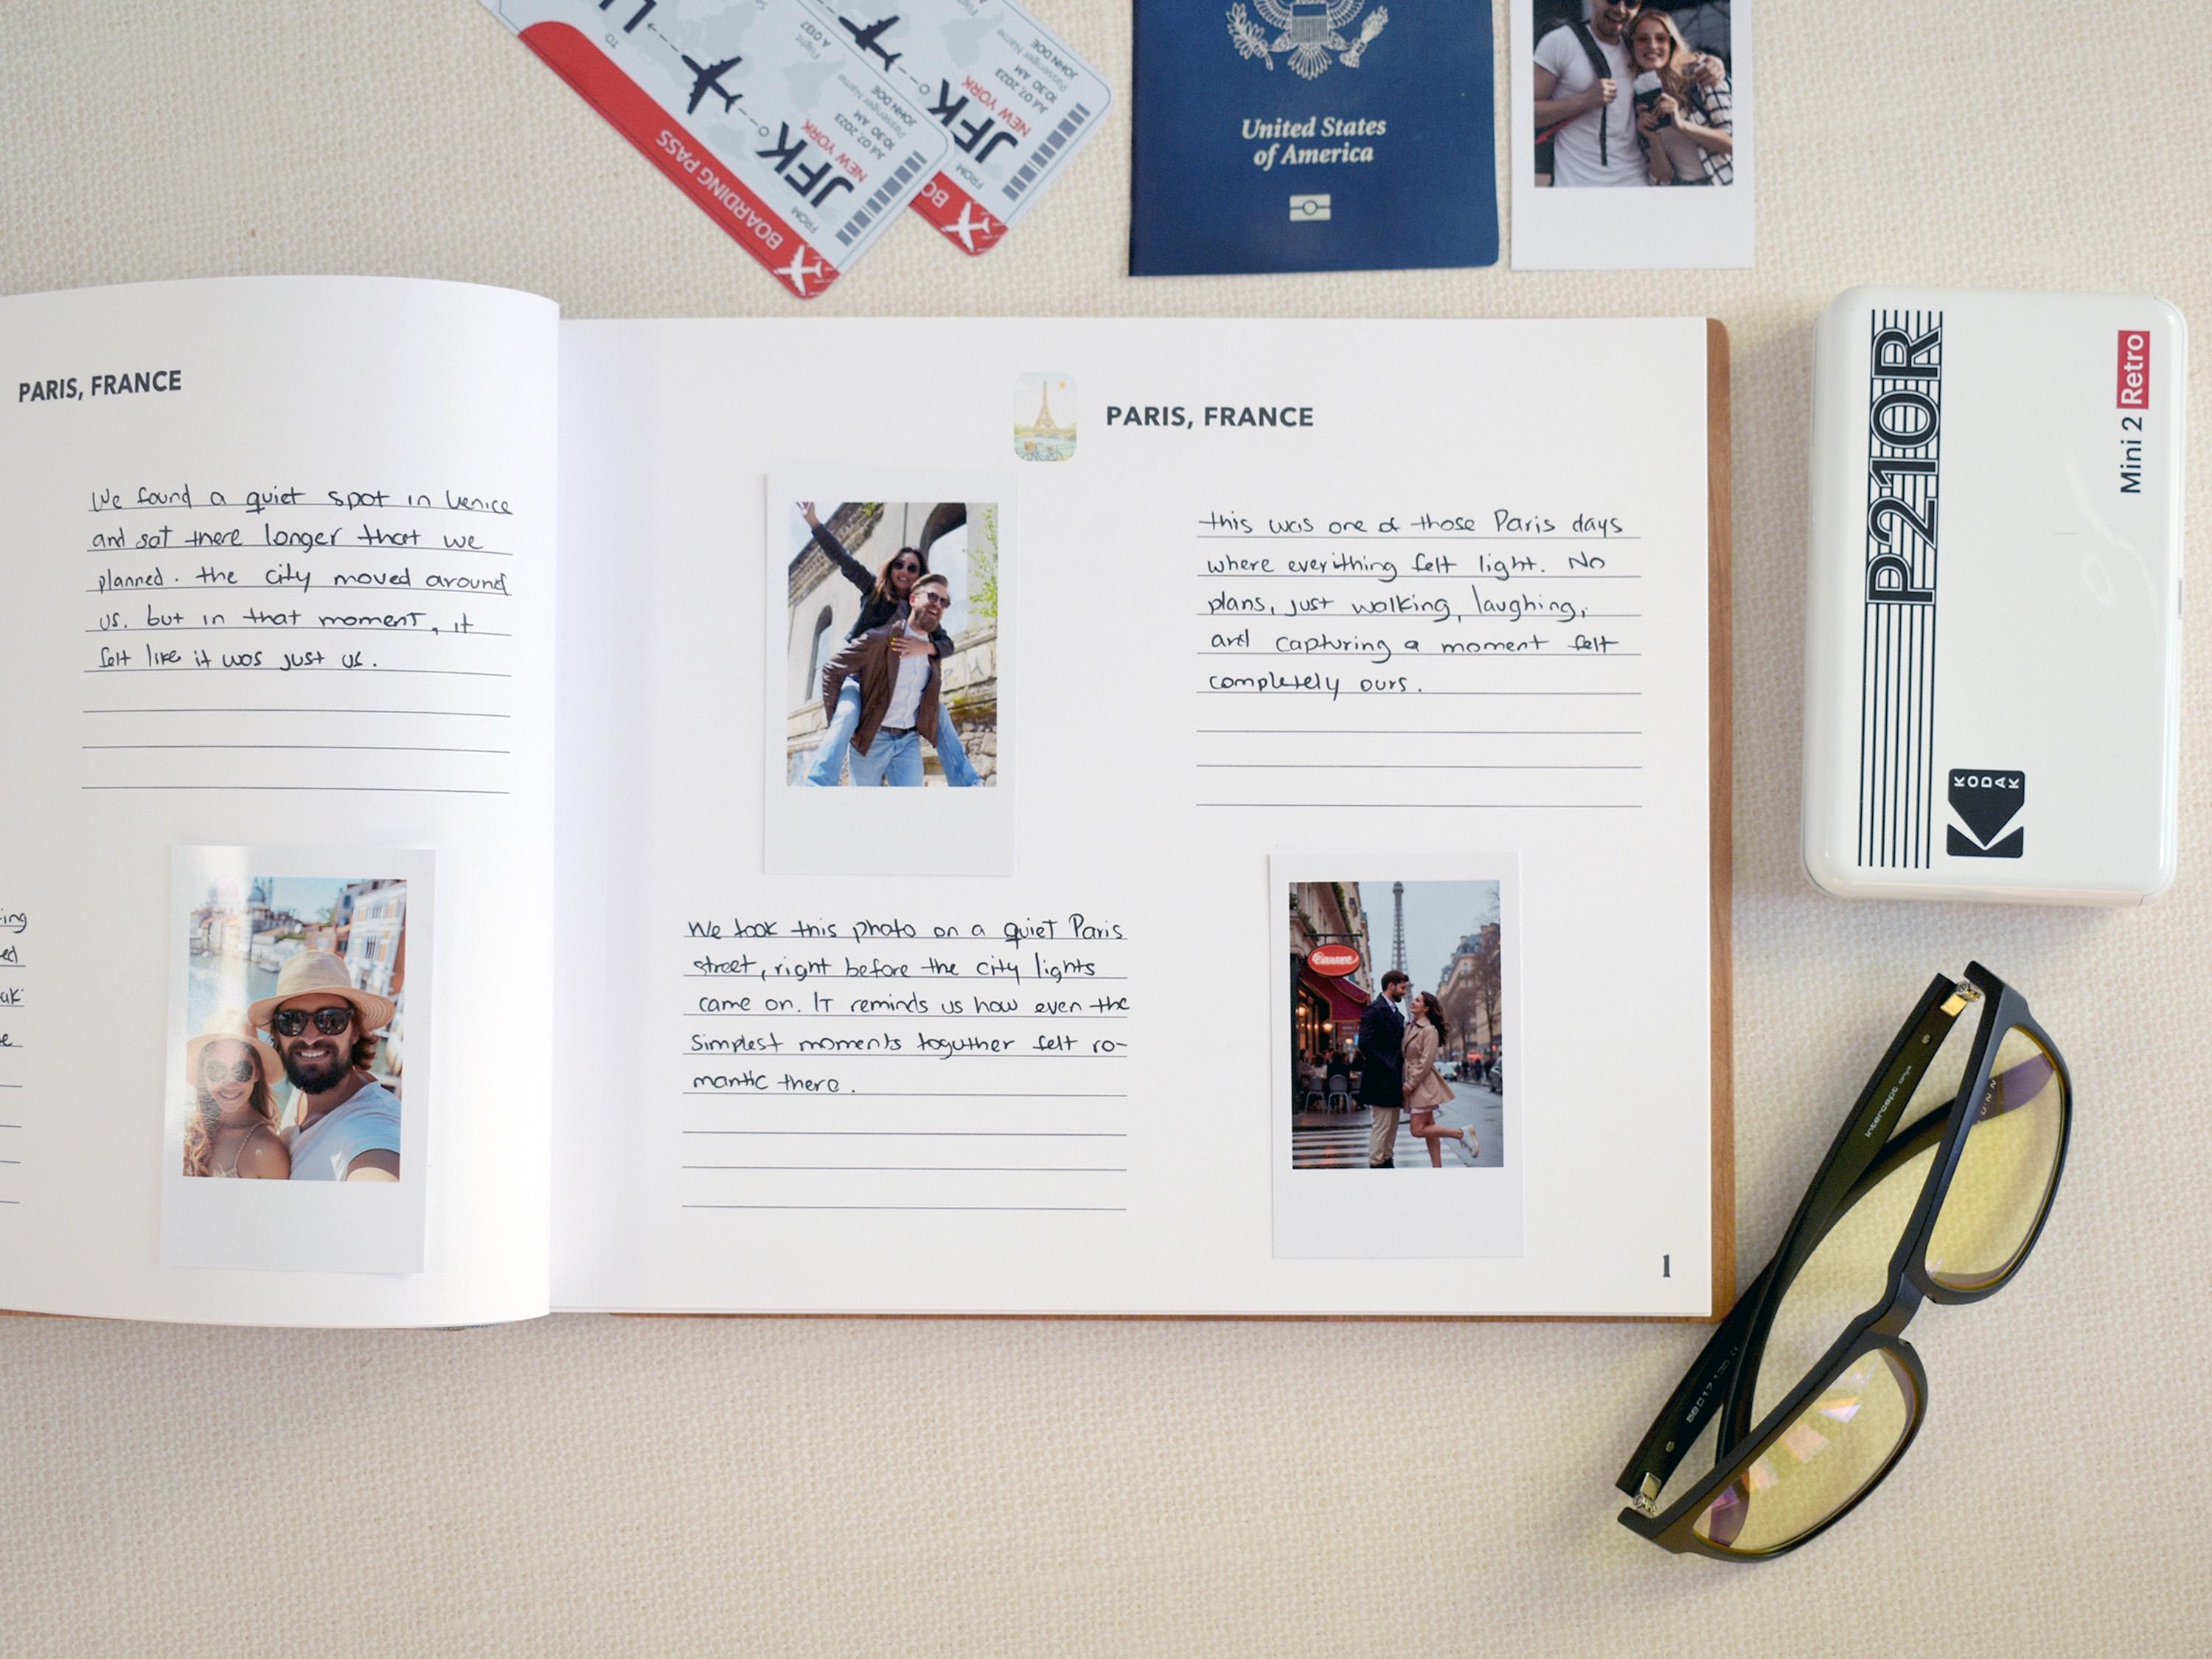 TO
Flight
A 0137
Passenger Name
JOHN DOE
Jul 07, 2023
10:30 AM
JFK
NEW YORK
FROM
BOARDING PASS
Passenger Name
JOHN DOE
Jul 07, 2023
10:30 AM
JFK
NEW YORK
FROM
BO
United States
of America
PARIS, FRANCE
We found a quiet spot in Venice
and sat there longer that we
planned. the city moved around
us. but in that moment, it
felt like it was just us.
ing
ed
PARIS, FRANCE
this was one of those Paris days
where everithing felt light. No
plans, just walking, laughing,
and capturing a moment felt
completely ours.
We took this photo on a quiet Paris
street, right before the city lights
came on. IT reminds us how even the
simplest moments toguther felt ro-
mantic there.
1
P210R
Mini 2 Retro
KODAK
intercept onyx